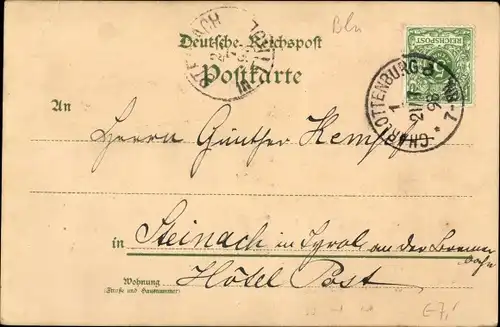 Bln
Deutsche Reichspost
Postkarte
REICHSPOST
STEINACH
TIROL
CHARLOTTENBURG
1
98
7-
An
Herrn Günther Kempf
in Steinach in Tyrol an der Brenner
bahn
Wohnung
(Straße und Hausnummer)
Hôtel Post